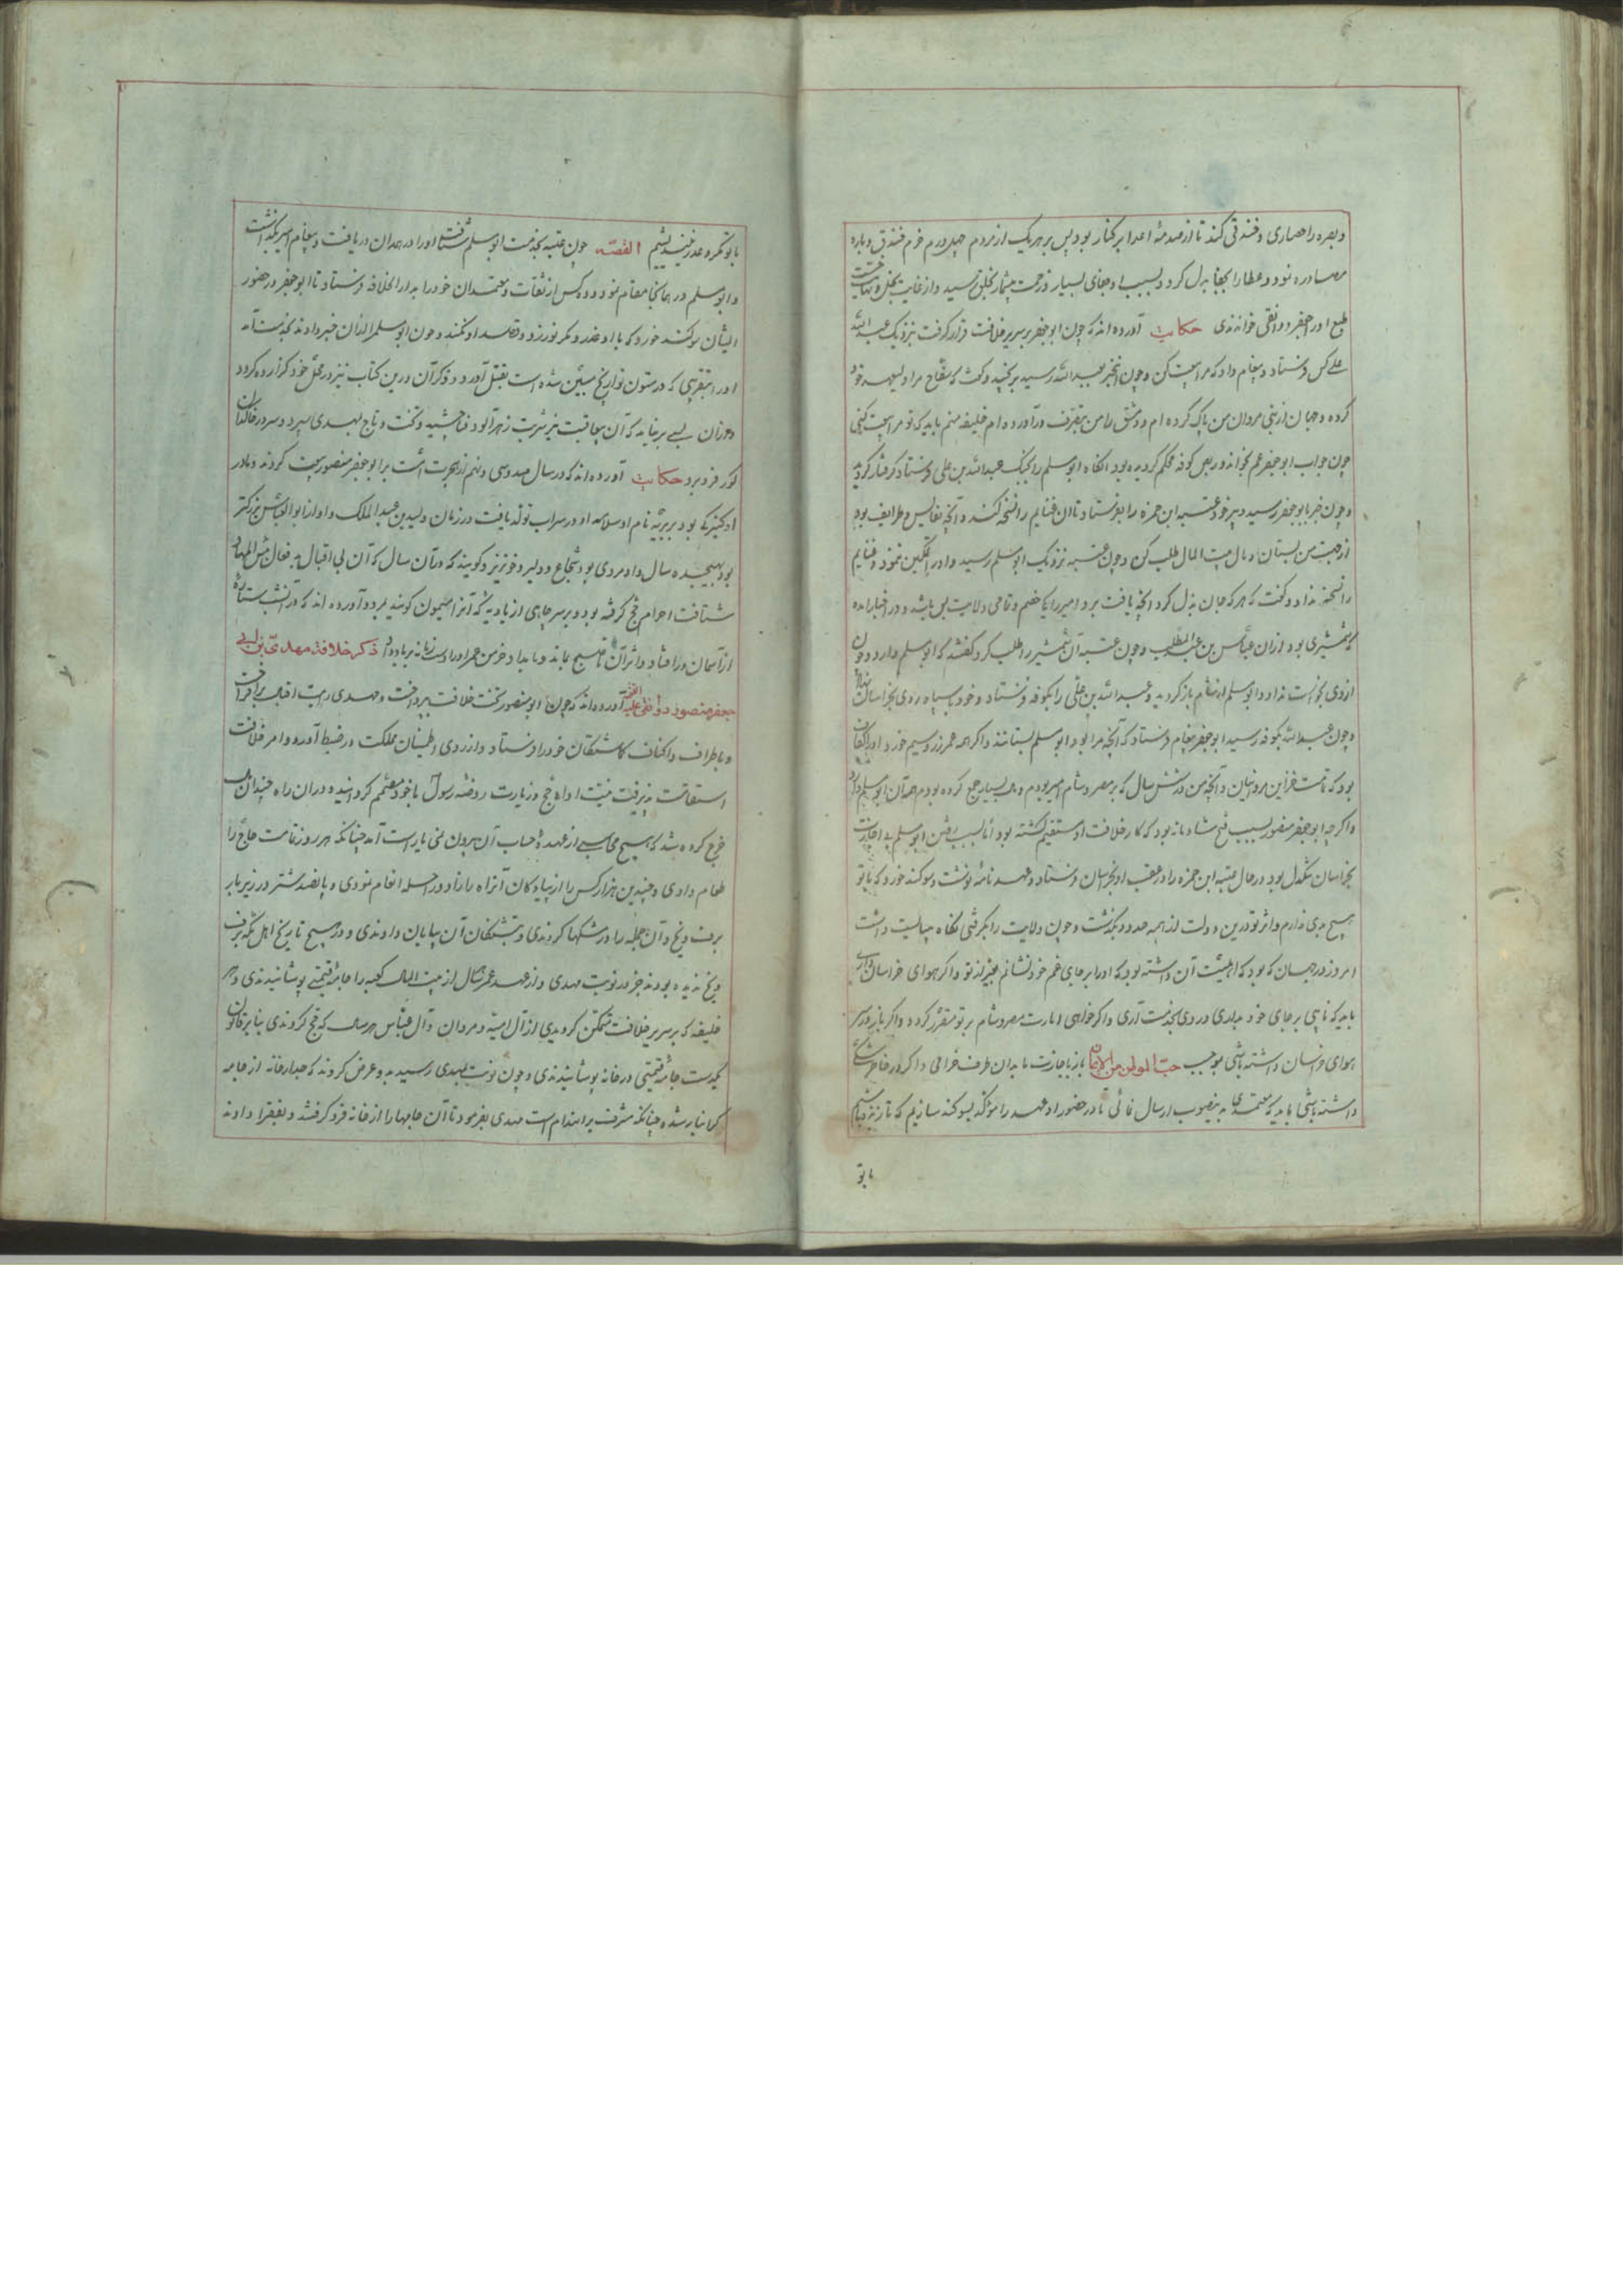 وبصره را حصاری و خندقی کند تا از صدمهٔ اعدا بر کنار بود پس بر هر یک از مردم چهل درم خرم خندق و باره
مصادره نمود و عطا را بجفا بدل کرد و بسبب او جفای بسیار و زحمت بیشمار بخلق رسید و از غایت بخل و نهایت خست
طبع او را جعفر دوانقی خواندندی حکایت آورده اند که چون ابو جعفر بر سریر خلافت قرار گرفت نزدیک عبد الله
علی کس فرستاد و پیغام داد که مرا بیعت کن و چون این خبر بعبد الله رسید برنجید و گفت که سفاح مرا ولیعهد خود
کرده و جهان از بنی مروان من پاک کرده ام و دمشق را من بتصرف در آورده ام خلیفه منم باید که تو مرا بیعت کنی
چون جواب ابو جعفر عم بخواند و ربض کوفه محکم گردیده بود آنگاه ابو مسلم را بجنگ عبد الله بن علی فرستاد گرفتار گردید
و چون خبر بابو جعفر رسید دبیر خود عتبه ابن حمزه را بفرستاد تا آن غنایم را نسخه کند و آنچه نفایس و طرایف بود
از جهت من بستان و مال بیت المال طلب کن و چون عتبه نزدیک ابو مسلم رسید و او را تمکین ننمود و غنایم
را نسخه نداد و گفت که هر که جان بذل کرد آنچه یافت برد امیر را با خصم و تمامی ولایت بس باشد و در اخبار آمده
که شمشیری بود از آن عباس بن عبد المطلب و چون عتبه آن شمشیر را طلب کرد گفتند که ابو مسلم دارد و چون
از وی بخواست نداد و ابو مسلم از شام باز گردید و عبد الله بن علی را بکوفه فرستاد و خود با سپاه روی بخراسان نهاد
و چون عبد الله بکوفه رسید ابو جعفر پیغام فرستاد که آنچه مرا بود ابو مسلم بستاند و اگر همه عمر زر و سیم خورد او را کفاف
بود که تمامت خزاین مروانیان و آنچه من در شش سال که بر مصر و شام امیر بودم و مال بسیار جمع کرده بودم همه آن ابو مسلم دارد
و اگر چه ابو جعفر منصور بسبب فتح شادمانه بود که کار خلافت او مستقیم گشته بود اما بسبب رفتن ابو مسلم بی اجازت
بخراسان تنگدل بود در حال عتبه ابن حمزه را در عقب او بخراسان فرستاد و عهد نامه نوشت و سوگند خورد که با تو
هیچ بدی ندارم و اثر تو درین دولت از همه حد در گذشت و چون ولایت را بگرفتی نگاه می بایست داشت
امروز در جهان که بود که اهلیت آن داشته بود که او را بر جای عم خود نشانم بغیر از تو و اگر هوای خراسان داری
باید که نایبی بر جای خود بداری و روی بخدمت آری و اگر خواهی امارت مصر و شام بر تو مقرر کردد و اگر باز در سر
هوای خراسان داشته باشی بموجب حب الوطن من الایمان باز باجازت ما بدان طرف خرامی و اگر در خاطر شکی
داشته باشی باید که معتمدی به ینصوب ارسال نمائی تا در حضور او عهد را موکد بسوکند سازیم که تا زنده باشیم
با تو
با تو مکر و غدر نیندیشیم القصه چون عتبه بخدمت ابو مسلم شتافت او را در همدان دریافت و پیغام امیر بگذاشت
و ابو مسلم در همانجا مقام نمود و دو کس از ثقات و معتمدان خود را بدار الخلافه فرستاد تا ابو جعفر در حضور
ایشان سوکند خورد که با او غدر و مکر نورزد و قصد او نکند و چون ابو مسلم را از آن خبر دادند بخدمت آمد
او را بتقریبی که در متون تواریخ مبین شده است بقتل آورد و ذکر آن درین کتاب نیز در محل خود گزارده گردد
و از آن بسی برنیامد که آن بی عاقبت نیز شربت زهر آلود فنا چشید و تخت و تاج بمهدی سپرد و سر در خاکدان
گور فرو برد حکایت آورده اند که در سال صد و سی و نهم از هجرت است بر ابو جعفر منصور بیعت کردند و مادر
او کنیزکی بود بربریه نام او سلامه او در سراب تولد یافت در زمان ولید بن عبد الملک و او از ابو العباس بزرگتر
بود بهیجده سال و او مردی بود شجاع و دلیر و خونریز و گویند که در آن سال که آن بی اقبال بد فعال بئس المهاد
شتافت احرام حج گرفته بود و بر سر چاهی از بادیه که آنرا میمون گویند بمرد و آورده اند که در آنشب ستارهٔ
از آسمان در افتاد و اثر آن تا صبح بماند و بامداد خرمن عمر او را دست زمانه بر باد داد ذکر خلافة مهدی بن ابی
جعفر منصور دوانقی علیه اللعنه آورده اند که چون ابو منصور تخت خلافت بپرداخت و مهدی رایت اقبال بر افراخت
و باطراف و اکناف گماشتگان خود را فرستاد و از روی اطمینان مملکت در ضبط آورد و امر خلافت
استقامت پذیرفت نیت اداء حج و زیارت روضه رسول با خود مصمم گردانیده و در آن راه چندان مال
خرج کرده شد که هیچ محاسبی از عهدهٔ حساب آن بیرون نمی یارست آمد چنانکه هر روز تمامت حاج را
طعام دادی و چندین هزار کس را از پیادگان آنراه را زاد و راحله انعام نمودی و پانصد شتر در زیر بار
برف و یخ و آن جمله را در مشکها کردندی و تشنگان آن بیابان دادندی و در هیچ تاریخ اهل مکه برف
و یخ ندیده بودند جز در نوبت مهدی و از عهد عمر هر سال از بیت المال کعبه را جامهٔ قیمتی پوشانیدندی و هر
خلیفه که بر سریر خلافت متمکن گردیدی از آل امیه و مروان و آل عباس هر سال که حج کردندی بنا بر قانون
یکدست جامهٔ قیمتی در خانه پوشانیدندی و چون نوبت بمهدی رسید بدو عرض کردند که جدار خانه از جامه
گرانبار شده چنانکه مشرف بر انهدام است مهدی بفرمود تا آن جامها را از خانه فرو گرفتند و بفقرا دادند